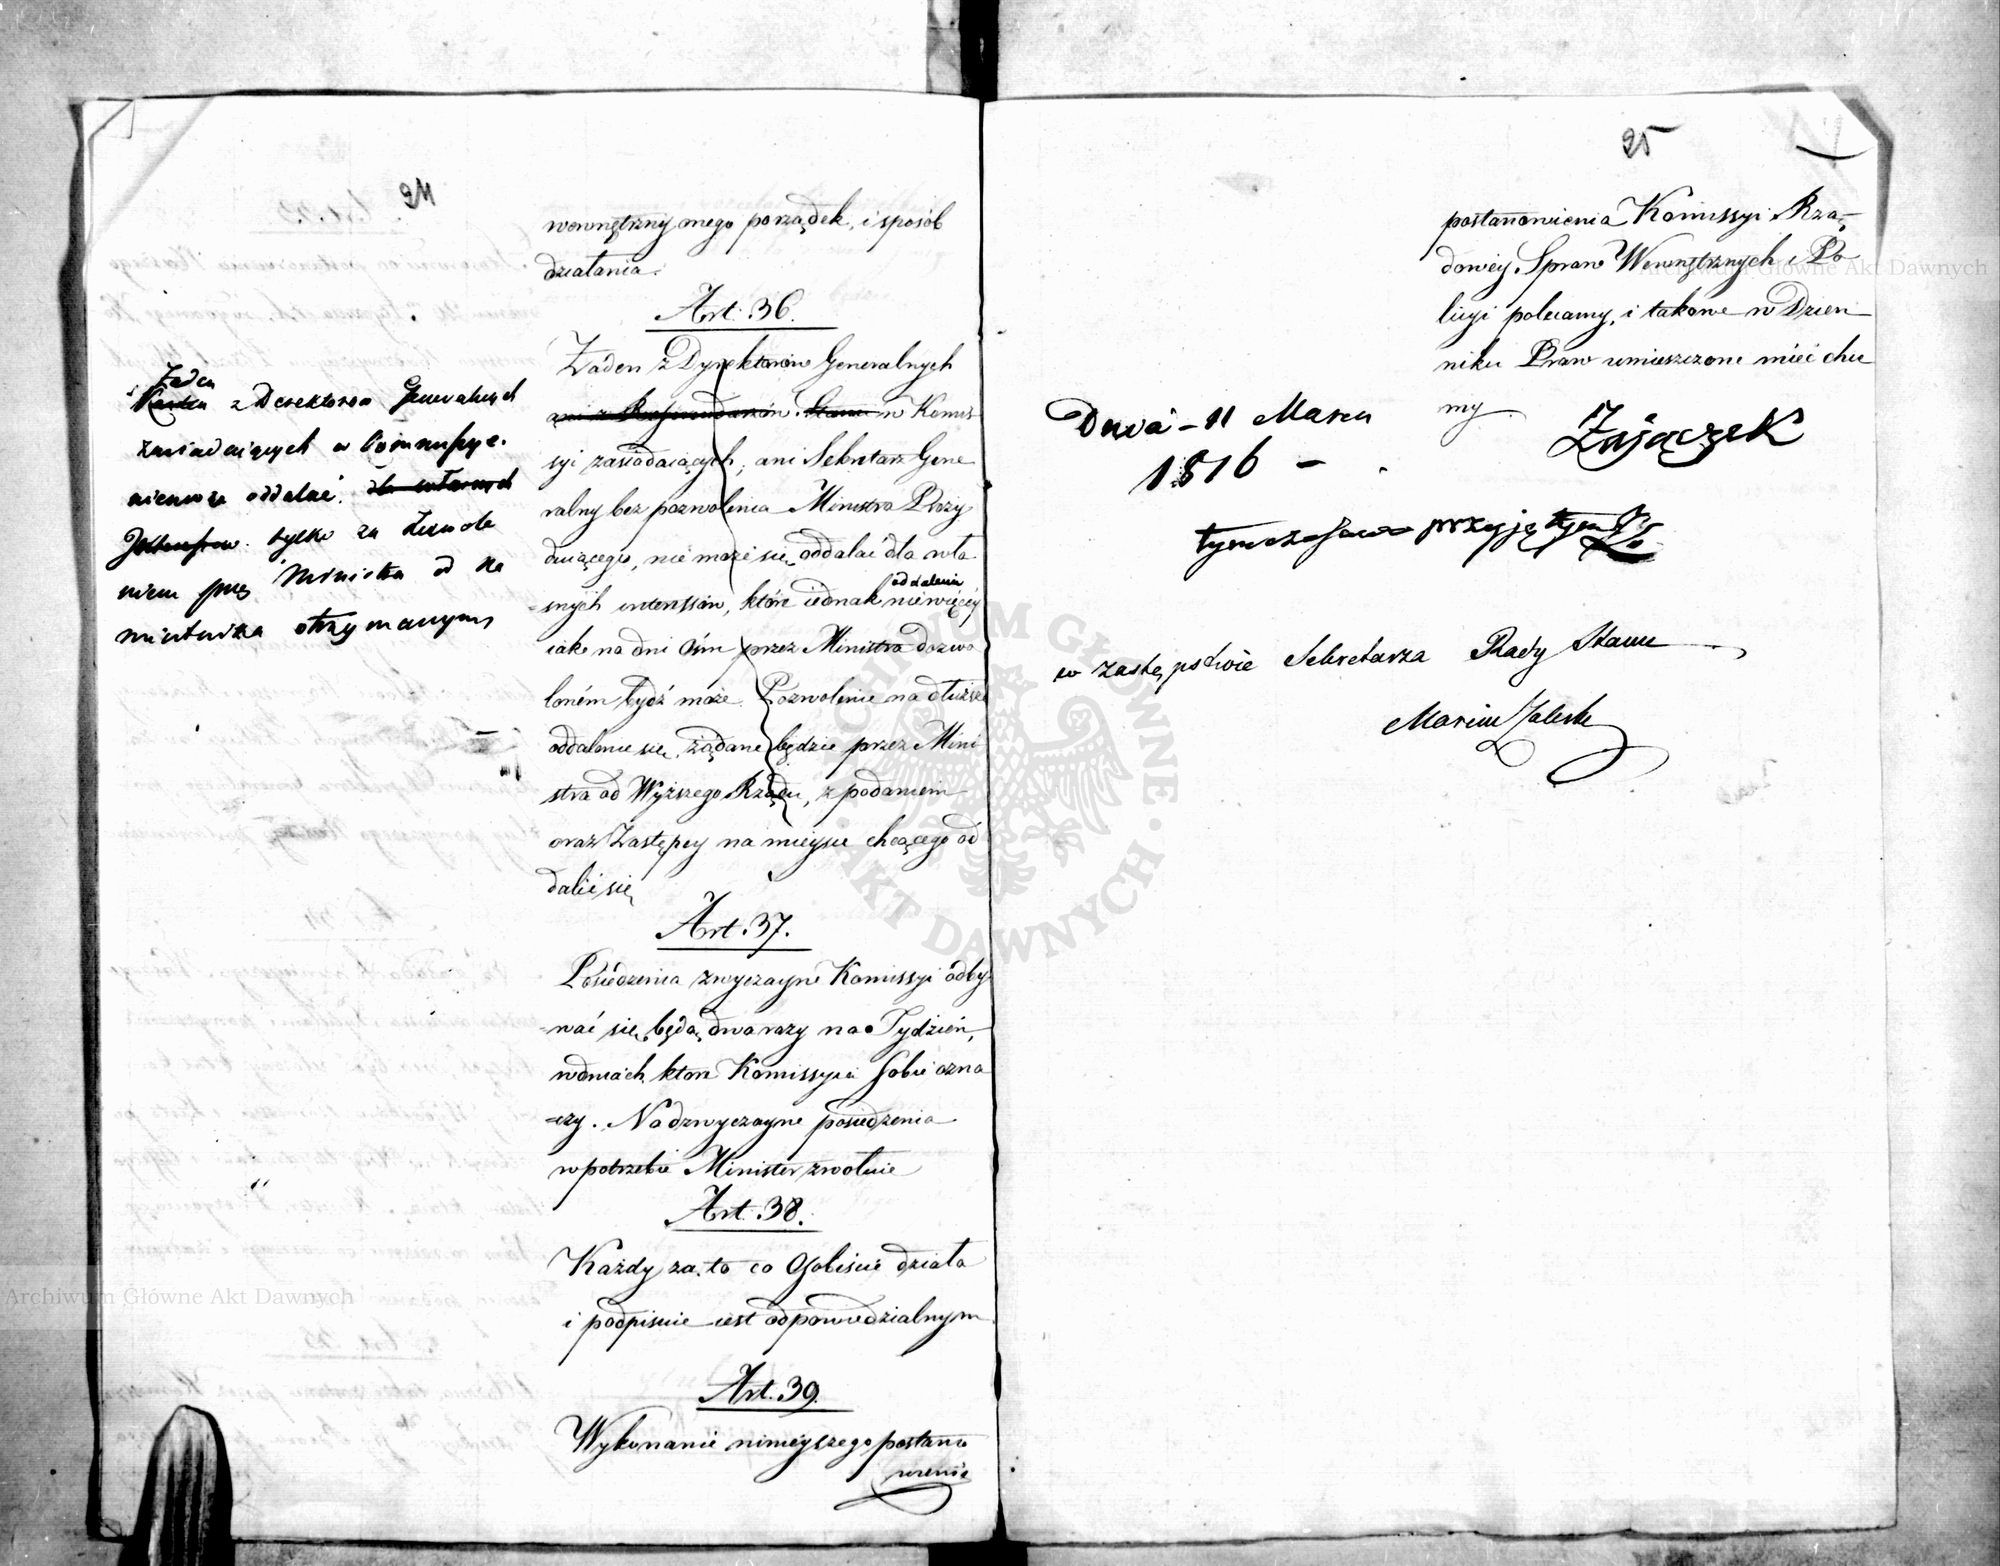 24
wewnętrznynego porządek, i sposób
działania.
Art. 36.
Żaden z Dyrektorów Generalnych
ani z Referendarzów Stanu w Komis
syi zasiadaiących, ani Sekretarz Gene
ralny bez pozwolenia Ministra Prezy
duiącego, nie może się oddalać dla wła
snych interessów, które iednak oddalenie niewięcéy
iak na dni ośm przez Ministra dozwo
loném bydź może. Pozwolenie na dłuższe
oddalenie się, żądane będzie przez Mini
stra od Wyższego Rządu, z podaniem
oraz Zastępcy na mieysce chcącego od
dalić się
Art. 37.
Posiedzenia zwyczayne Komissyi odby
wać się będą dwa razy na Tydzień,
w dniach które Kommissyia sobie ozna
czy. Nadzwyczayne posiedzenia
w potrzebie Minister zwołuie
Art. 38.
Każdy za to co Osobiście działa
i podpisuie iest odpowiedzialnym
Art. 39.
Wykonanie ninieyszego postano
wienia
Żaden
z Derektorow Generalnych
zasiadaiących w Commissye.
niemoże oddalać. dla własnych
Jnteressow. tylko za
niem przez Ministra od Na
miestnika otrzymanym,
25
postanowienia Komissyi Rzą
dowéy Spraw Wewnętrznych i Po
licyi polecamy, i takowe w Dzien
niku Praw umieszczone mieć chce
my
Zajączek
Dnia - 11 Marca
1816 -
tymczasowo przyięty
w zastępstwie Sekretarza Rady Stanu
Marcin Zaleski
Archiwum Główne Akt Dawnych
Archiwum Główne Akt Dawnych
ARCHIWUM GŁÓWNE · AKT DAWNYCH ·